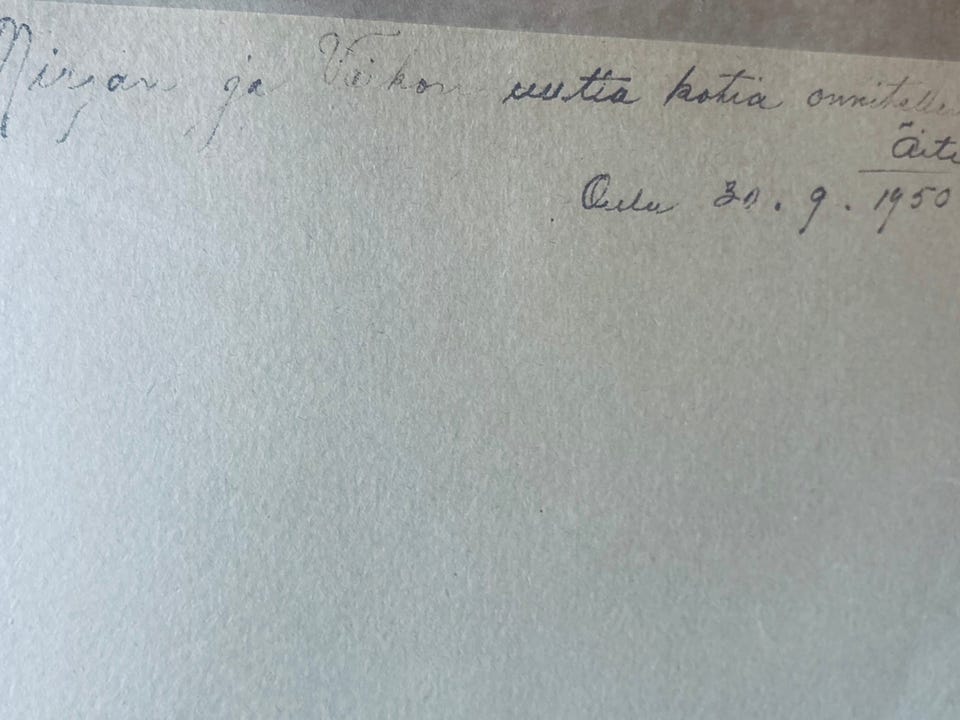 Mirjan ja Veikon uutta kotia onnitellen
Äiti
Oulu 30. 9. 1950